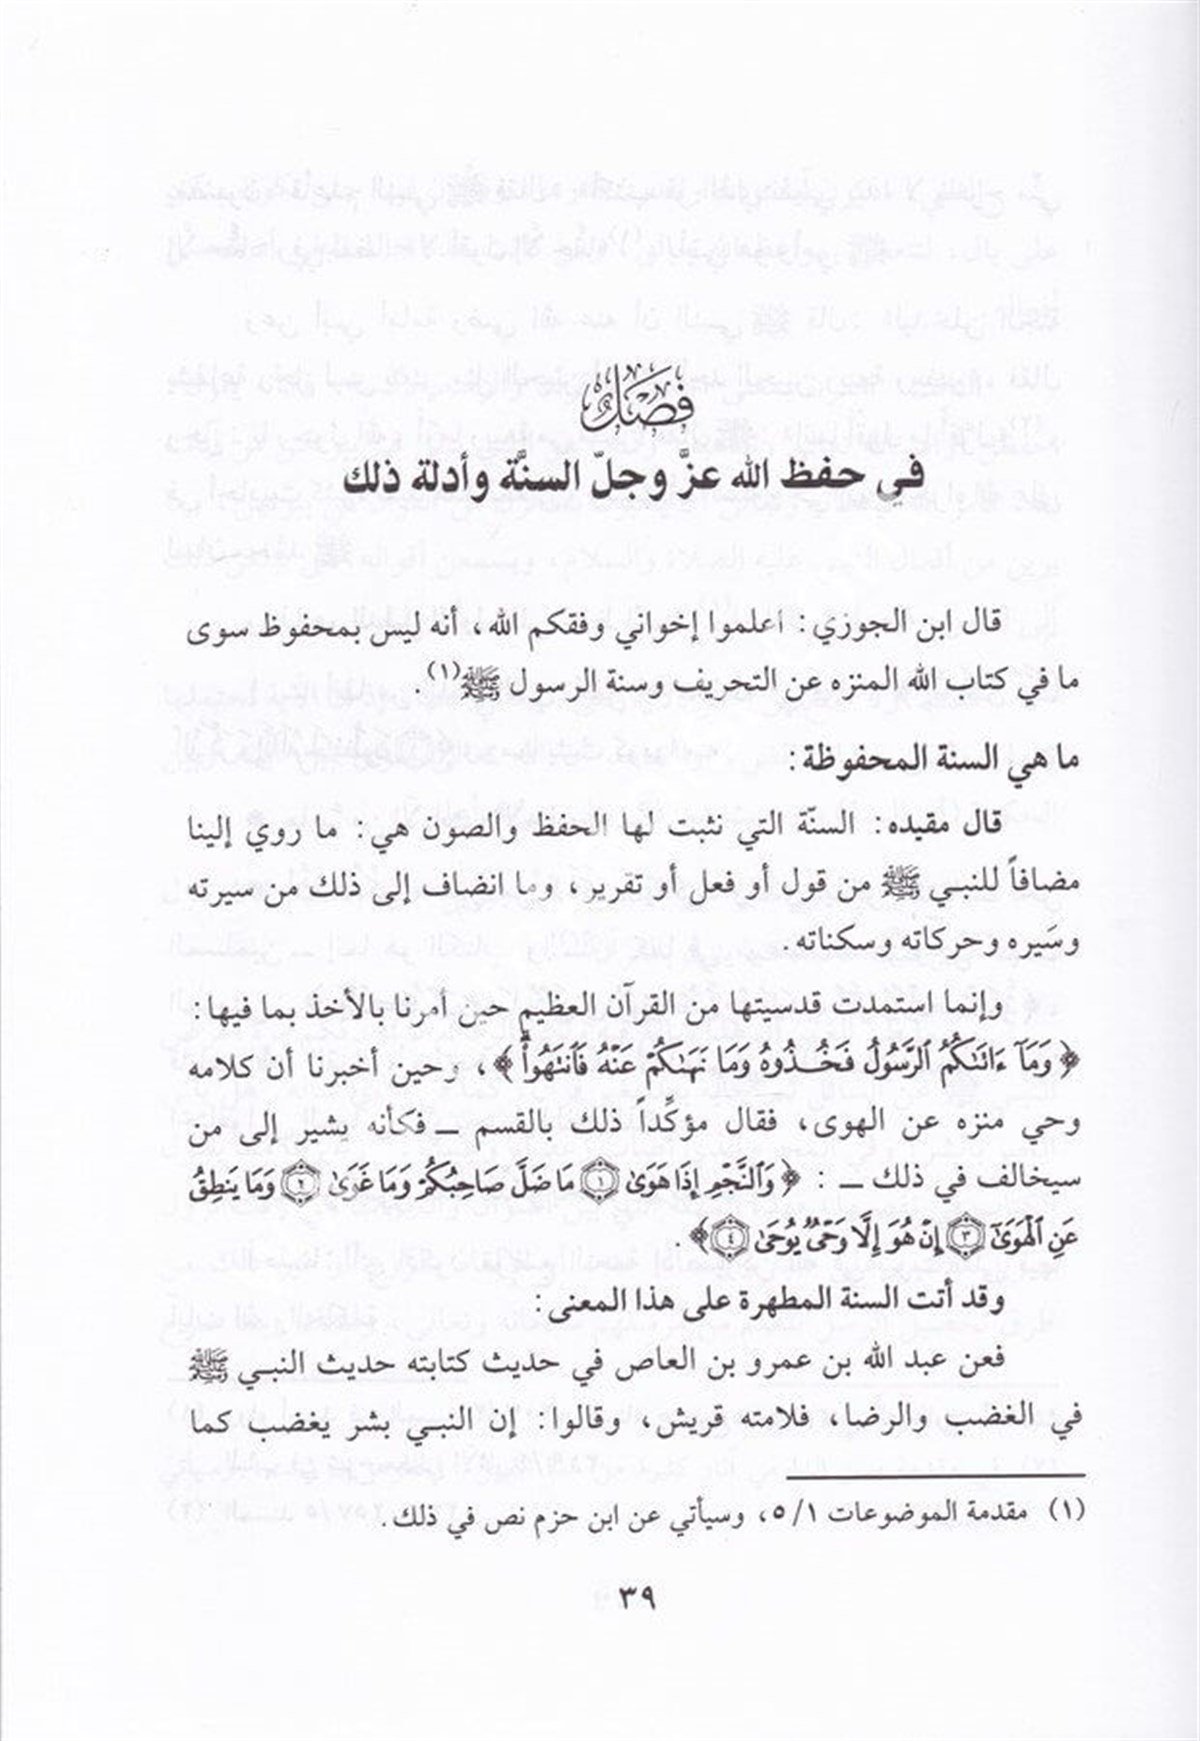 فصل
في حفظ الله عزَّ وجلّ السنَّة وأدلة ذلك
قال ابن الجوزي: اعلموا إخواني وفقكم الله، أنه ليس بمحفوظ سوى
ما في كتاب الله المنزه عن التحريف وسنة الرسول ﷺ(١).
ما هي السنة المحفوظة:
قال مقيده: السنّة التي نثبت لها الحفظ والصون هي: ما روي إلينا
مضافاً للنبي ﷺ من قول أو فعل أو تقرير، وما انضاف إلى ذلك من سيرته
وسَيره وحركاته وسكناته.
وإنما استمدت قدسيتها من القرآن العظيم حين أمرنا بالأخذ بما فيها:
﴿ وَمَآ ءَاتَىٰكُمُ ٱلرَّسُولُ فَخُذُوهُ وَمَا نَهَىٰكُمْ عَنْهُ فَٱنتَهُوا۟ۚ ﴾، وحين أخبرنا أن كلامه
وحي منزه عن الهوى، فقال مؤكِّداً ذلك بالقسم ــ فكأنه يشير إلى من
سيخالف في ذلك ــ : ﴿ وَٱلنَّجْمِ إِذَا هَوَىٰ ۝١ مَا ضَلَّ صَاحِبُكُمْ وَمَا غَوَىٰ ۝٢ وَمَا يَنطِقُ
عَنِ ٱلْهَوَىٰٓ ۝٣ إِنْ هُوَ إِلَّا وَحْىٌ يُوحَىٰ ۝٤ ﴾.
وقد أتت السنة المطهرة على هذا المعنى:
فعن عبد الله بن عمرو بن العاص في حديث كتابته حديث النبي ﷺ
في الغضب والرضا، فلامته قريش، وقالوا: إن النبي بشر يغضب كما
(١) مقدمة الموضوعات ٥/١، وسيأتي عن ابن حزم نص في ذلك.
٣٩